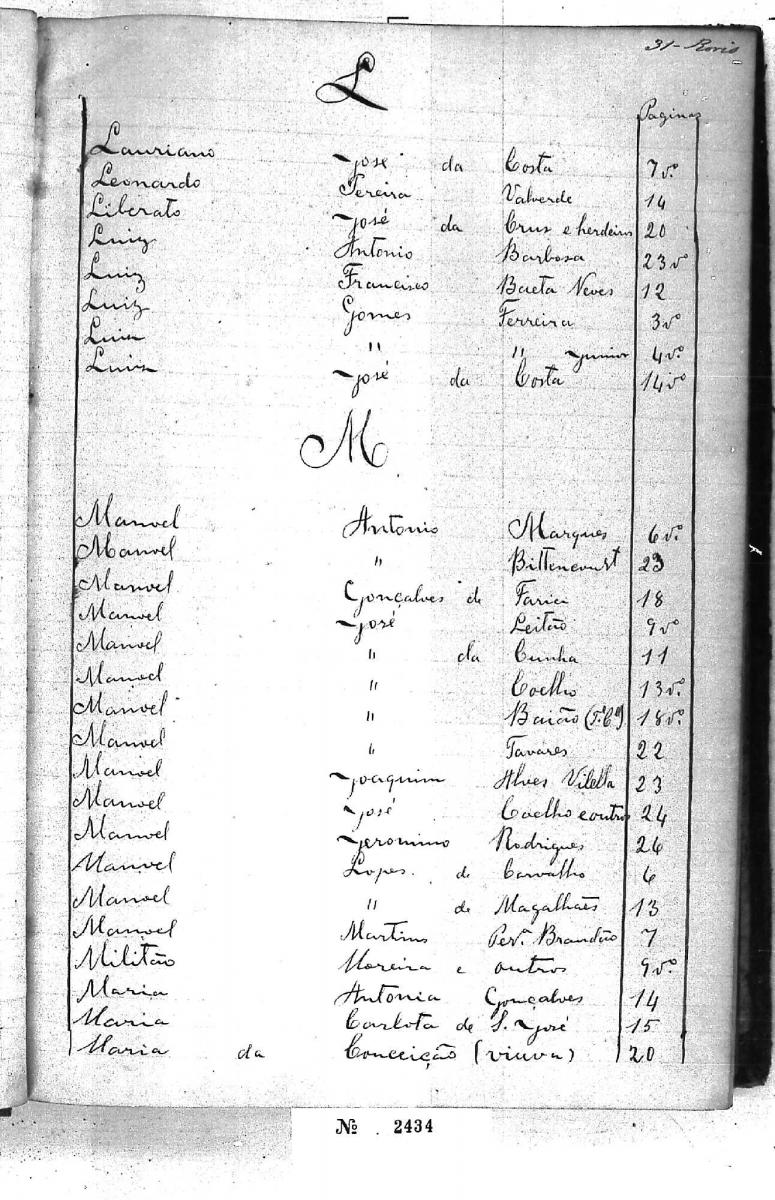 31-
L
Paginas
Lauriano José da Costa 7vº
Leonardo Pereira Valverde 14
Liberato José da Crus e herdeiros 20
Luiz Antonio Barbosa 23vº
Luiz Francisco Baeta Neves 12
Luiz Gomes Ferreira 3vº
Luiz " " Junior 4vº
Luiz José da Costa 14vº
M
Manoel Antonio Marques 6vº
Manoel " Bittencourt 23
Manoel Gonçalves de Faria 18
Manoel José Leitão 9vº
Manoel " da Cunha 11
Manoel " Coelho 13vº
Manoel " Baião 18vº
Manoel " Tavares 22
Manoel Joaquim Alves Vilella 23
Manoel José Coelho e outros 24
Manoel Jeronimo Rodrigues 26
Manoel Lopes de Carvalho 6
Manoel " de Magalhães 13
Manoel Martins Perª Brandão 7
Militão Moreira e outros 9vº
Maria Antonia Gonçalves 14
Maria Carlota de S. José 15
Maria da Conceição (viuva) 20
Nº 2434